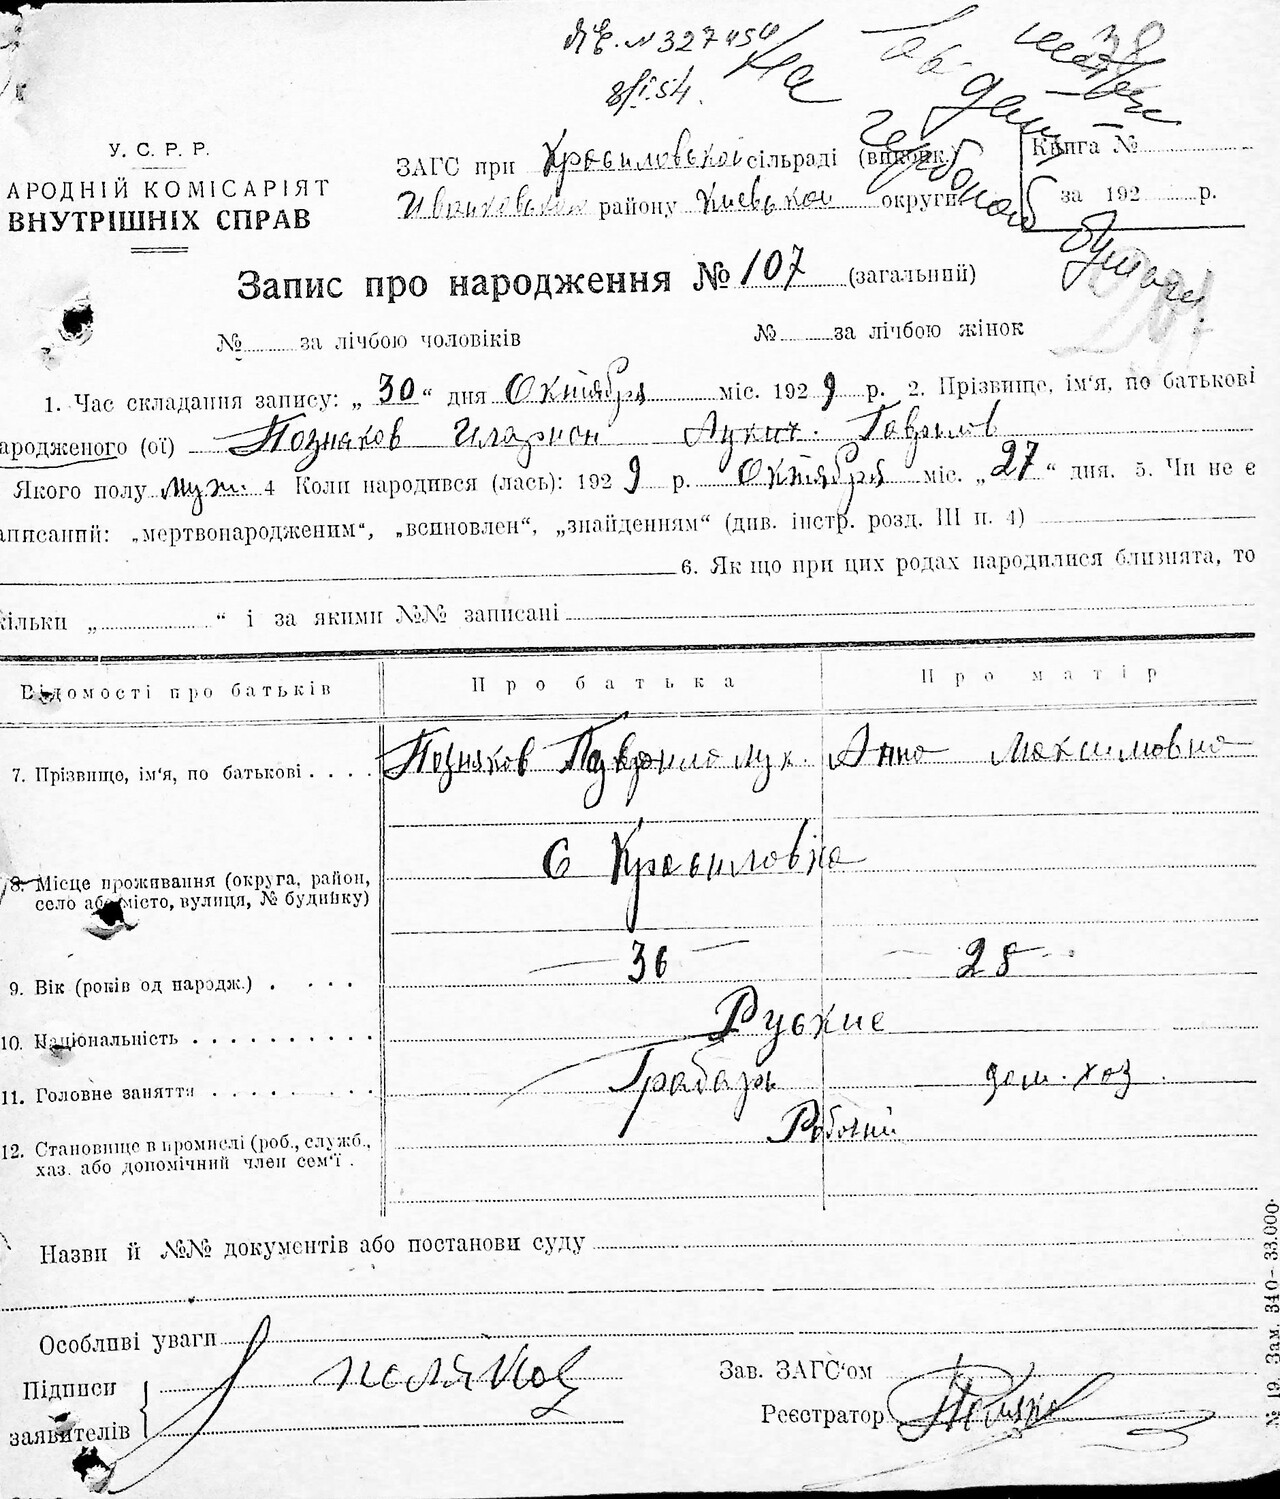 № 327454
8/I.54.
На
38
У. С. Р. Р.
АРОДНІЙ КОМІСАРІЯТ
ВНУТРІШНІХ СПРАВ
ЗАГС при Красиловской сільраді (виконк.)
Иванковском району Киевской округи
гербовой
бумаге.
Книга №
за 192 р.
Запис про народження № 107 (загальний)
№ за лічбою чоловіків № за лічбою жінок
1. Час складання запису: „ 30 “ дня Октября міс. 1929 р. 2. Прізвище, ім'я, по батькові
ародженого (ої) Позняков Иларион Лукич. Гаврилов
Якого полу муж. 4 Коли народився (лась): 1929 р. Октября міс. „ 27 “ дня. 5. Чи не є
аписаний: „мертвонародженим“, „всиновлен“, „знайденням“ (див. інстр. розд. III п. 4)
6. Як що при цих родах народилися близнята, то
кільки „ “ і за якими №№ записані
Відомості про батьків
Про батька
Про матір
7. Прізвище, ім'я, по батькові . . . .
Позняков Гаврило Лук. Анна Максимовна
8. Місце проживання (округа, район,
село або місто, вулиця, № будинку)
С Красиловка
9. Вік (років од народж.) . . . .
36 28
10. Національність . . . . . . . . . .
Руские
11. Головне заняття . . . . . . . . .
Грабарь дом. хоз.
12. Становище в промислі (роб., служб.,
хаз. або допомічний член сем'ї .
Робочий
Назви й №№ документів або постанови суду
Особливі уваги
Підписи
заявителів
Зав. ЗАГС'ом
Реєстратор
№ 19. Зам. 340—33.000.